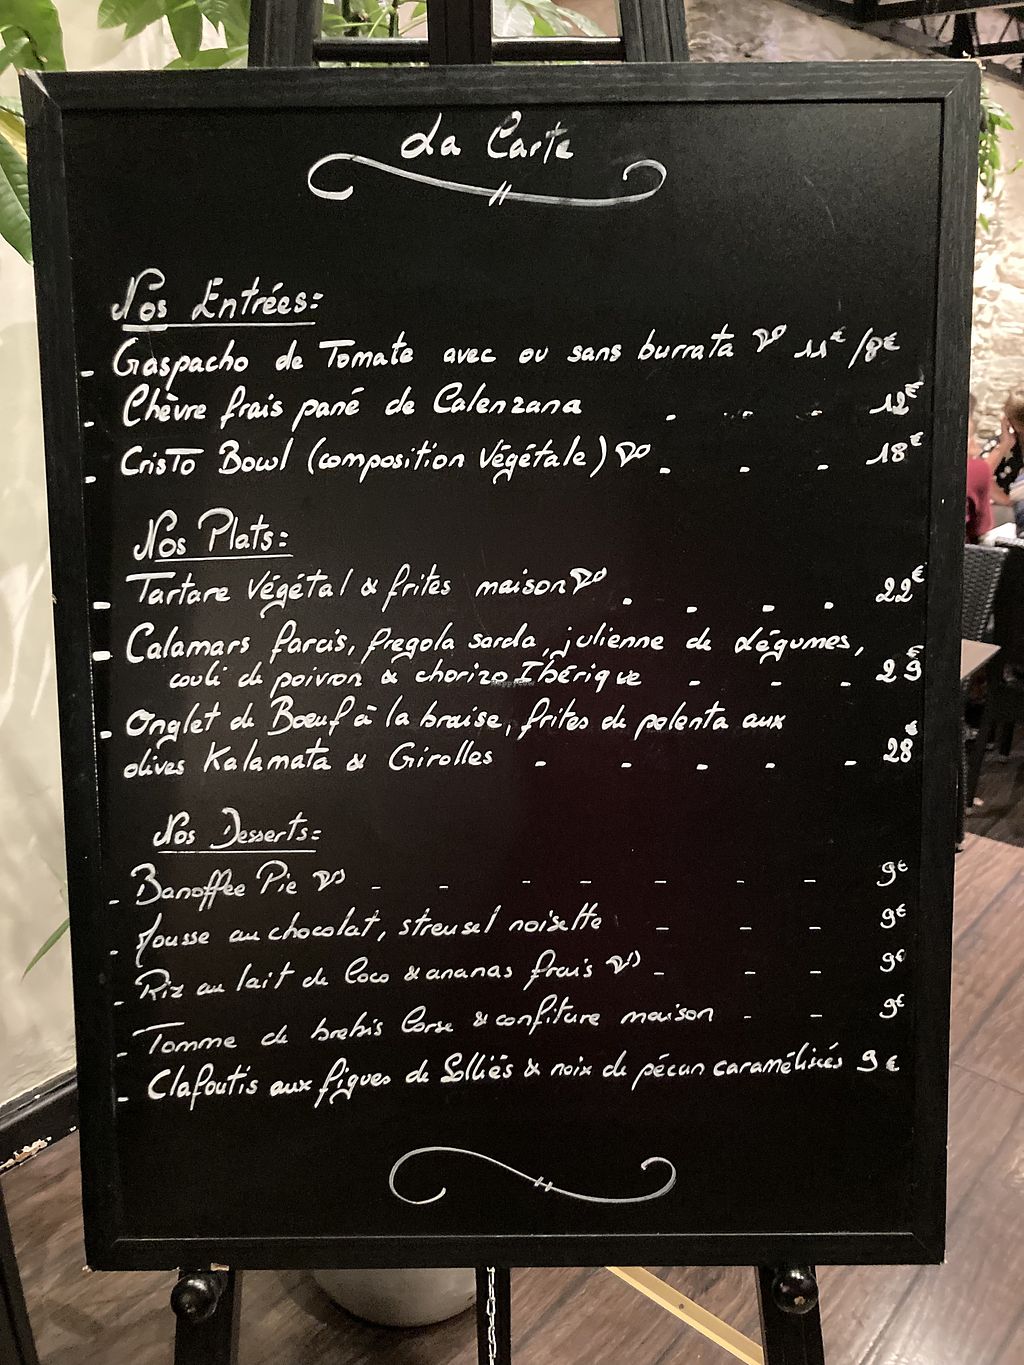 La Carte
Nos Entrées:
- Gaspacho de Tomate avec ou sans burrata 11€/8€
- Chèvre frais pané de Calenzana . . . . 12€
- CrisTo Bowl (composition Végétale) . . . 18€
Nos Plats:
- Tartare Végétal & frites maison . . . . 22€
- Calamars farcis, fregola sarda, julienne de légumes,
couli de poivron & chorizo Ibérique - - - 29€
- Onglet de Bœuf à la braise, frites de polenta aux
olives Kalamata & Girolles - - - - - 28€
Nos Desserts:
- Banoffee Pie - - - - - - - 9€
- Mousse au chocolat, streusel noisette - - - 9€
- Riz au lait de Coco & ananas frais - - - 9€
- Tomme de brebis Corse & confiture maison - - 9€
- Clafoutis aux figues de Solliès & noix de pécan caramélisés 9€